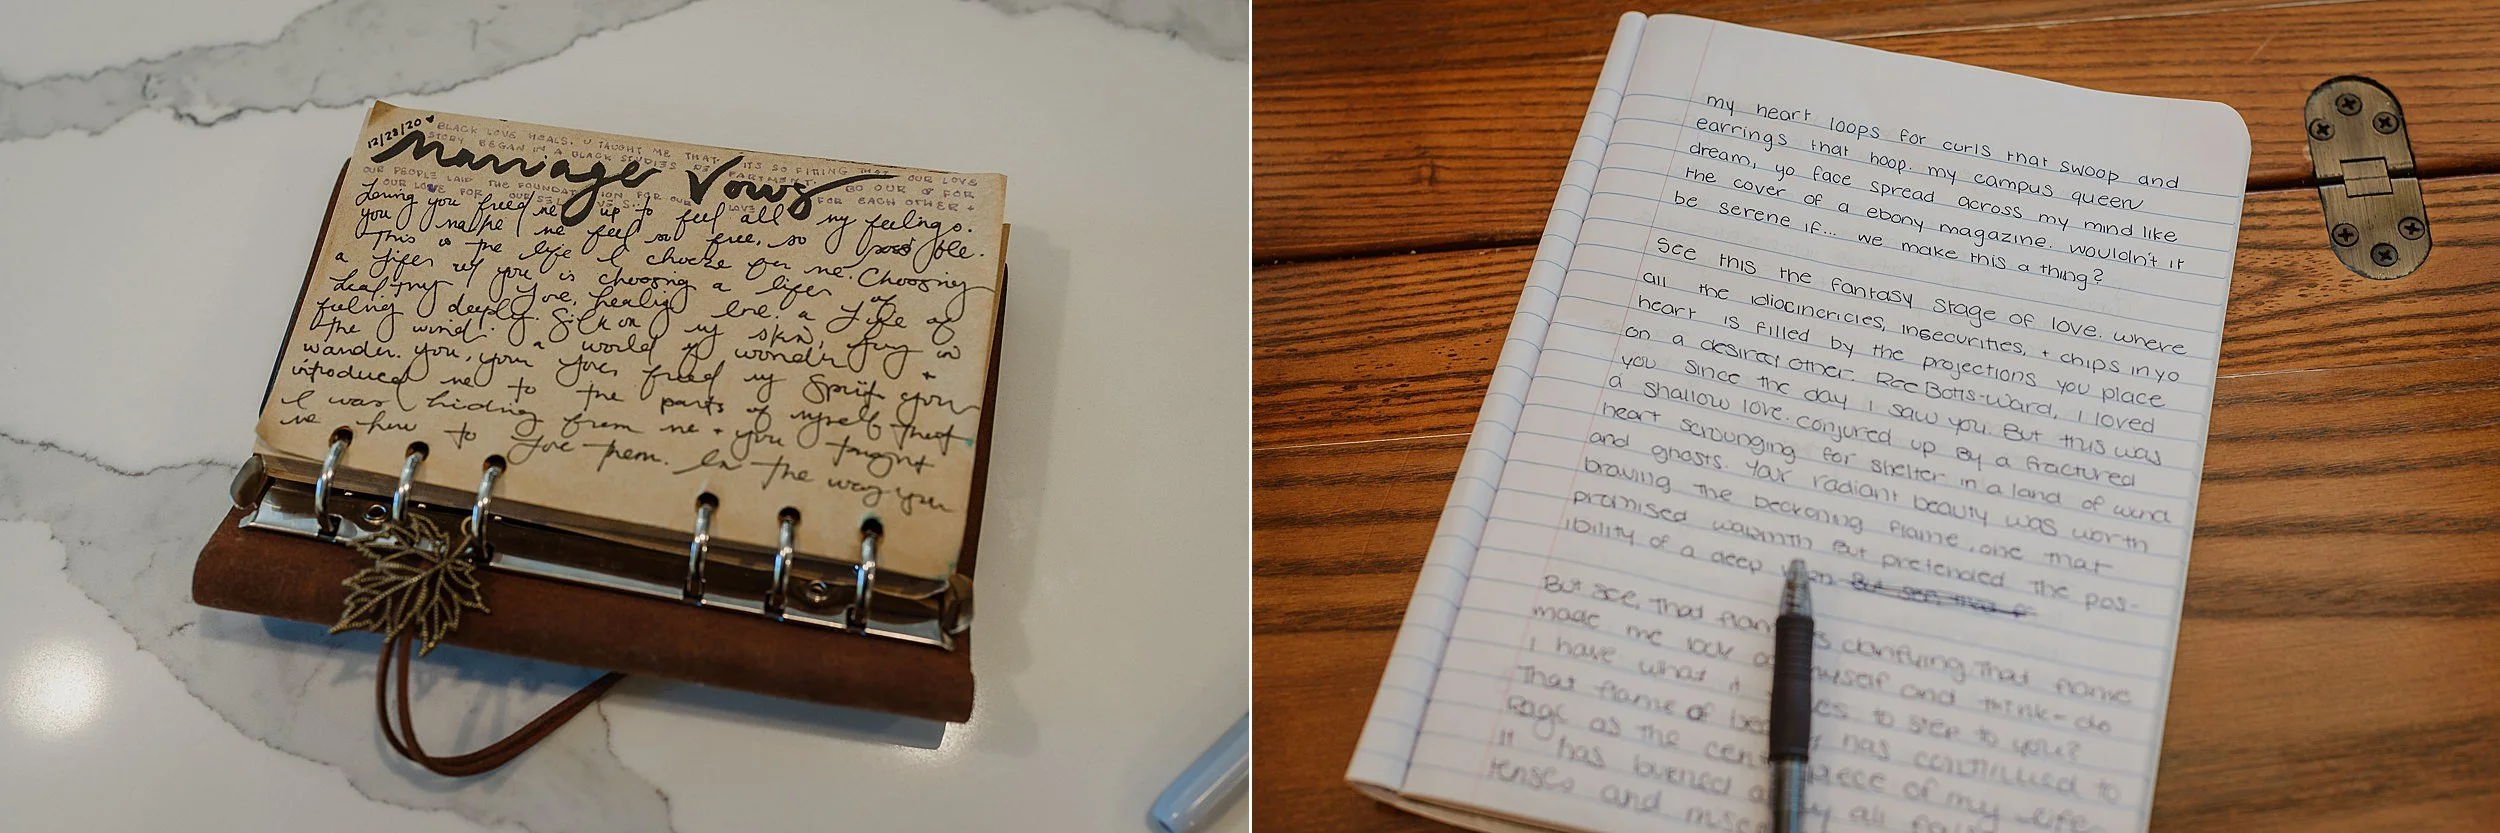 12/28/20 ♥
BLACK LOVE HEALS. U TAUGHT ME THAT. ITS SO FITTING THAT OUR LOVE
STORY BEGAN IN A BLACK STUDIES DEPARTMENT. SO OUR ♡ FOR
Marriage Vows
OUR PEOPLE LAID THE FOUNDATION FOR OUR LOVE FOR EACH OTHER +
OUR LOVE FOR OUR SELVES..
Loving you freed me up to feel all my feelings.
you make me feel so free, so
This is the life I choose for me. Choosing
a life w/ you is choosing a life of
love, healing love. a life of
feeling deeply. Silk on my skin,
the wind. a world of wonder +
wander. you, your love freed my spirit you
introduced me to the parts of myself that
I was hiding from me + you taught
me how to love them. In the way you
my heart loops for curls that swoop and
earrings that hoop. my campus queen
dream, yo face spread across my mind like
the cover of a ebony magazine. wouldn't it
be serene if... we make this a thing?
See this the fantasy stage of love. where
all the idiocincricies, insecurities, + chips in yo
heart is filled by the projections you place
on a desired other. Ree Botts-Ward, I loved
you since the day I saw you. But this was
a shallow love. conjured up by a fractured
heart scrounging for shelter in a land of wind
and ghosts. Your radiant beauty was worth
braving the beckoning flame, one that
promised warmth but pretended the pos-
ibility of a deep
But see, that flame clarifying that flame
made me look at myself and think - do
I have what it takes to step to you?
That flame of has continued to
Rage as the centerpiece of my life
It has burned all
senses and